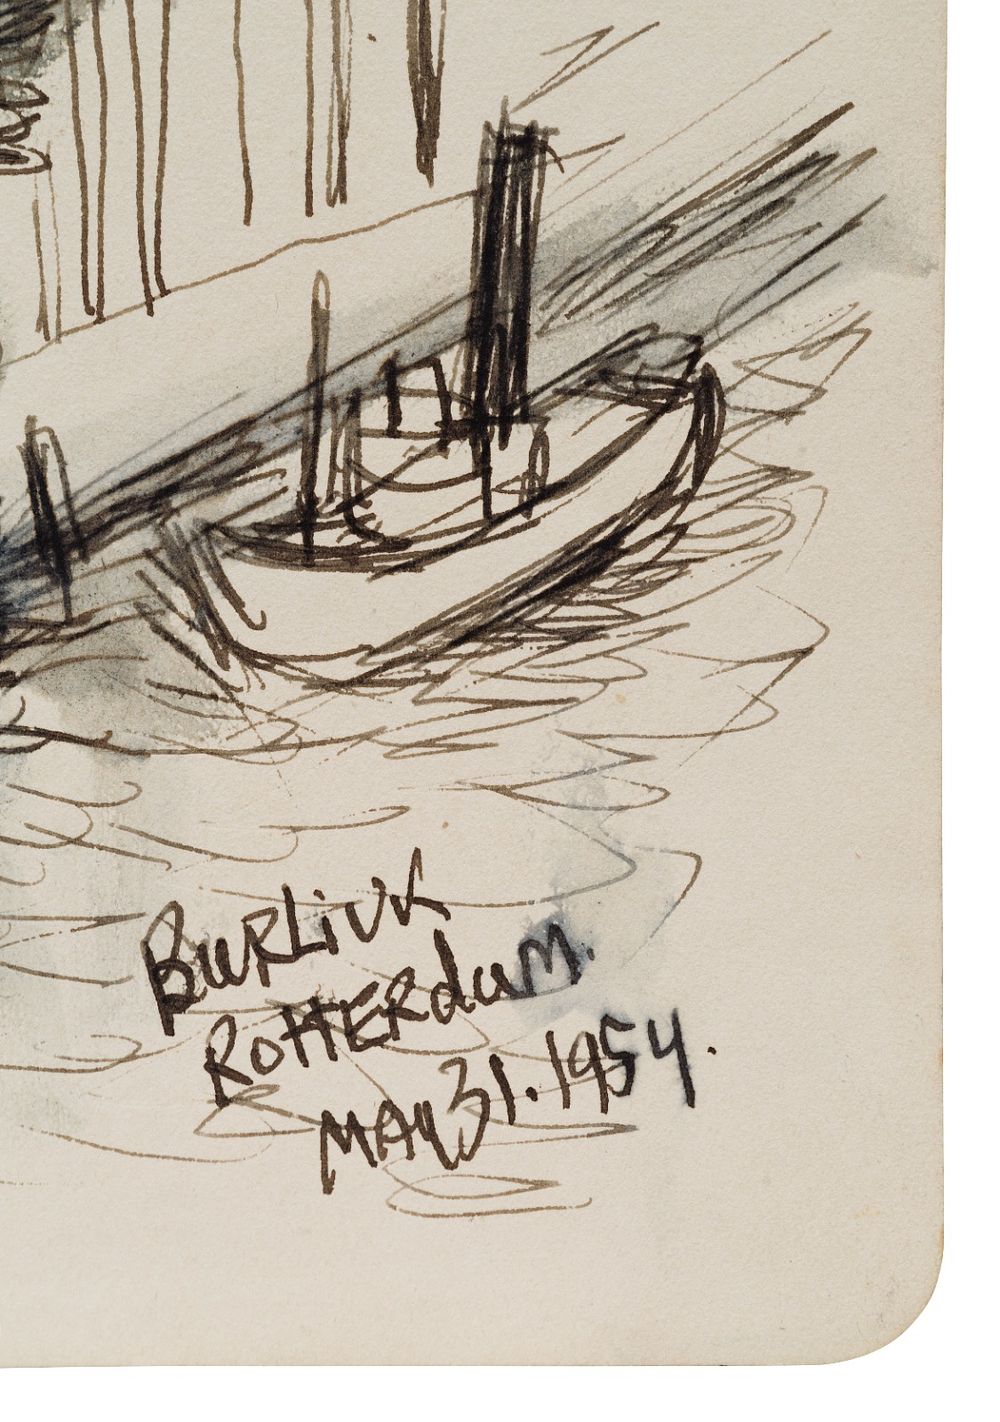 BURLiUK
ROTTERdaM.
MAY 31. 1954.